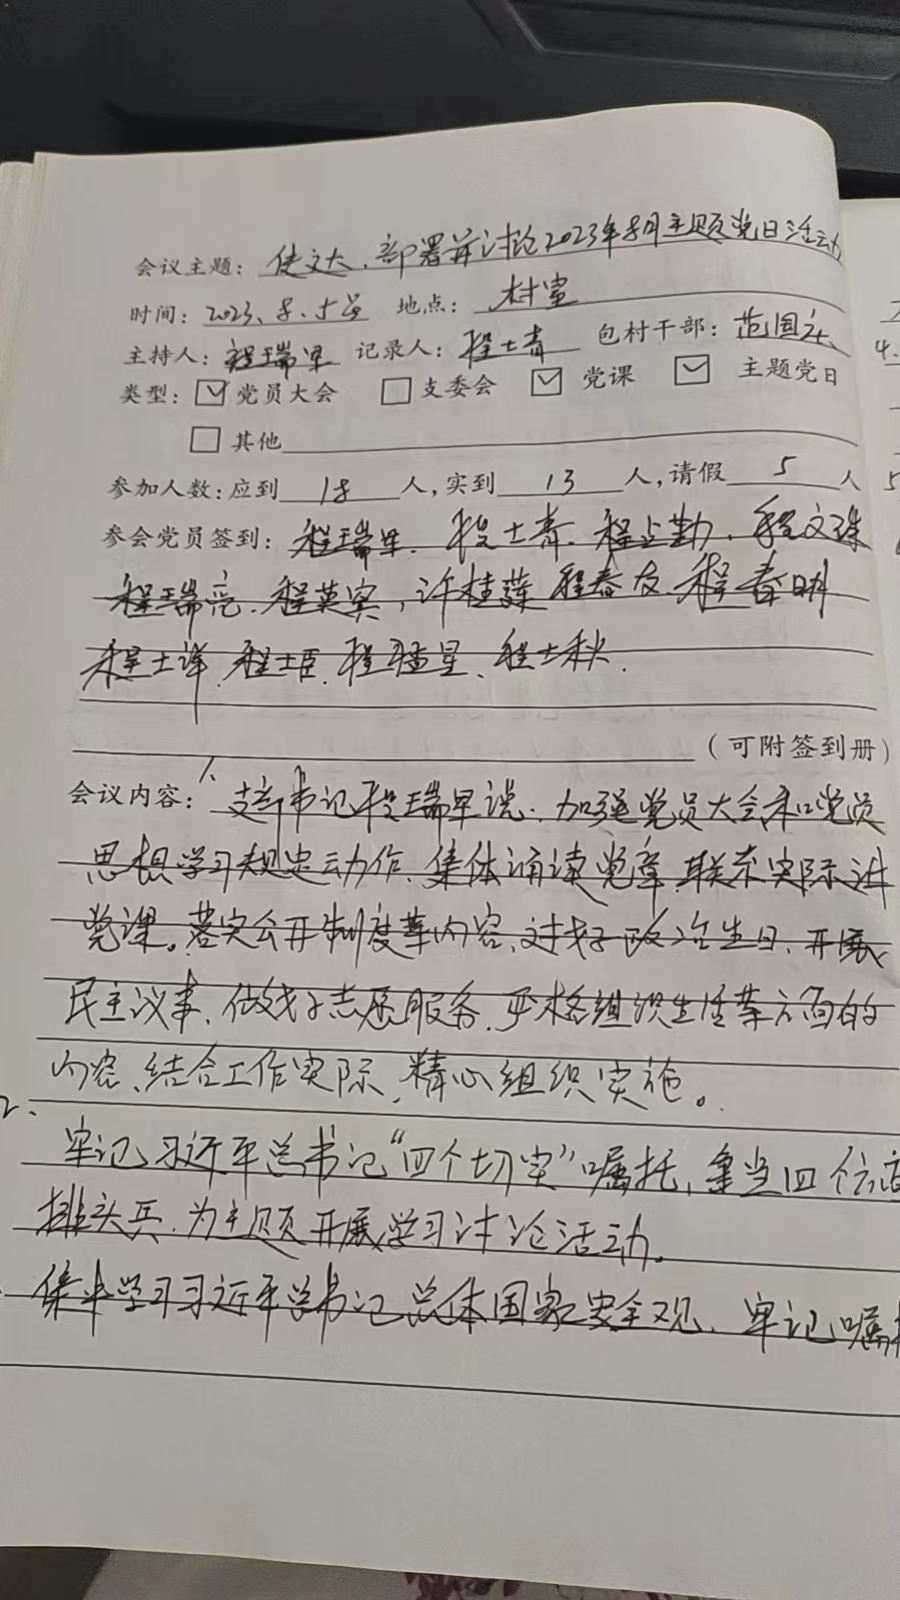 会议主题：传文达、部署并讨论2023年8月主题党日活动
时间：2023、8、 地点：村室
主持人：程瑞早 记录人：程士青 包村干部：范国
类型：☑党员大会 □支委会 ☑党课 ☑主题党日
□其他
参加人数：应到18人，实到13人，请假5人
参会党员签到：程瑞早、程士青、程占勤、程文珠
程瑞亮、程英宾，许桂莲 程春友、程春明
程士祥、程士臣、程瑾星、程士秋、
（可附签到册）
会议内容：1、支部书记程瑞早说、加强党员大会和党员
思想学习规定动作、集体诵读党章、联系实际讲
党课。落实公开制度等内容、过好政治生日、开展
民主议事、做好志愿服务、严格组织生活等方面的
内容、结合工作实际，精心组织实施。
2、
牢记习近平总书记“四个切实”嘱托，争当四个
排头兵、为主题开展学习讨论活动。
集中学习习近平总书记总体国家安全观、牢记嘱
4、
5